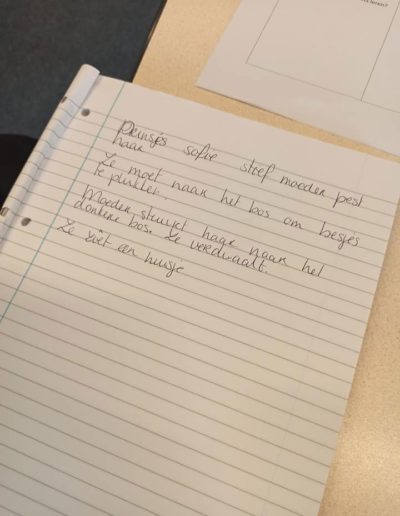 leren?
Prinsjes sofie stief moeder pest
haar
Ze moet naar het bos om besjes
te plukken.
Moeder stuurt haar naar het
donkere bos. Ze verdwaalt.
Ze ziet een huisje